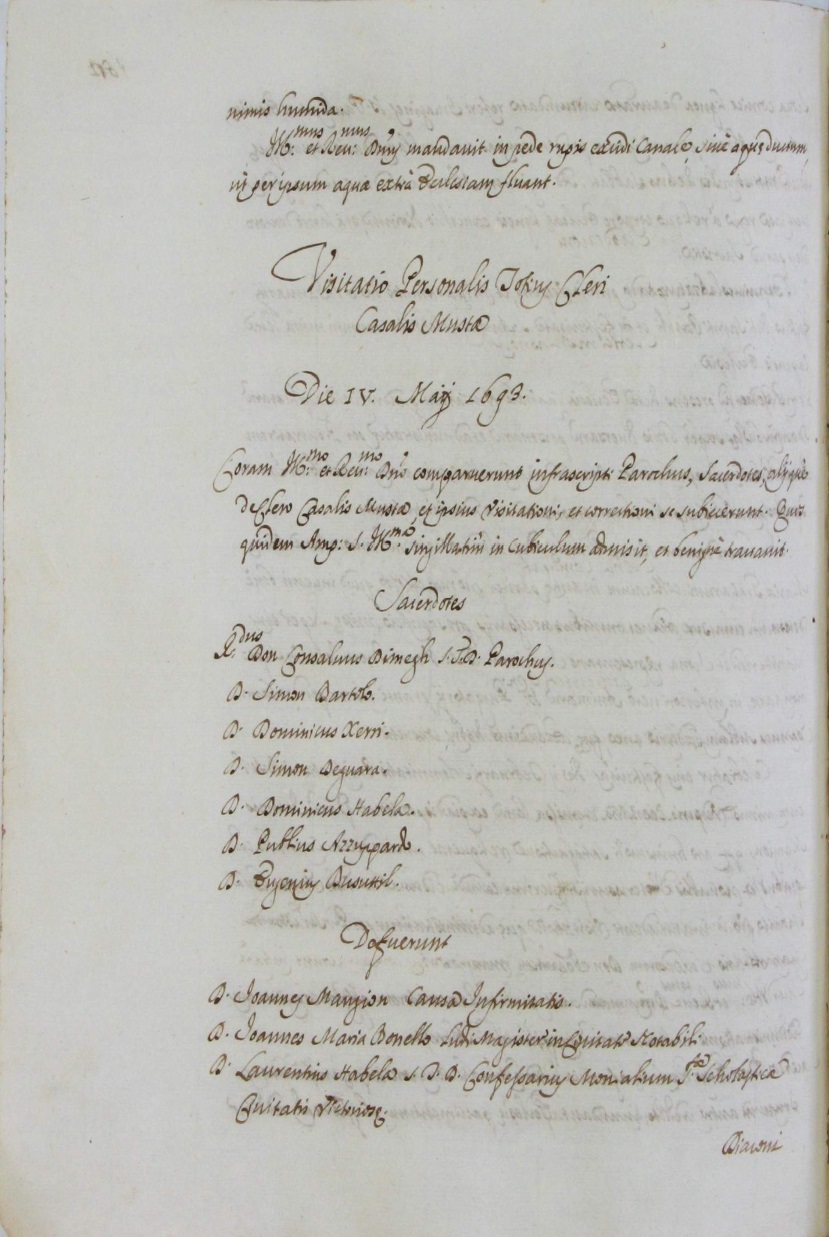 nimis humida.
Ill:mus et Rev:mus Dnus mandavit in pede rupis excidi Canale, sive aquæductum,
ut per ipsum aquæ extrà Ecclesiam fluant.
Visitatio Personalis Totius Cleri
Casalis Mustæ
Die IV. Maij 1693.
Coram Ill:mo et Rev:mo Dno comparuerunt infrascripti Parochus, Sacerdotes, aliiquè
de Clero Casalis Mustæ, et ipsius Visitationi, et correctioni se subiecerunt. Quos
quidem Amp: s. Ill:mo in Cubiculum admisit, et benignè
Sacerdotes
R:dus Don Consalvus Dimegh S.T.D. Parochus.
D. Simon Bartolo.
D. Dominicus Xerri.
D. Simon Deguara.
D. Dominicus Habela.
D. Publius Azzupardo.
D. Eugenius Busuttil.
Defuerunt
D. Joannes Mangion Causa Infirmitatis.
D. Joannes Maria Bonello Ludi Magister in Civitate Notabili
D. Laurentius Habela S.T.D. Confessarius Monialium S:tæ Scholasticæ
Civitatis Victoriosæ.
Diaconi